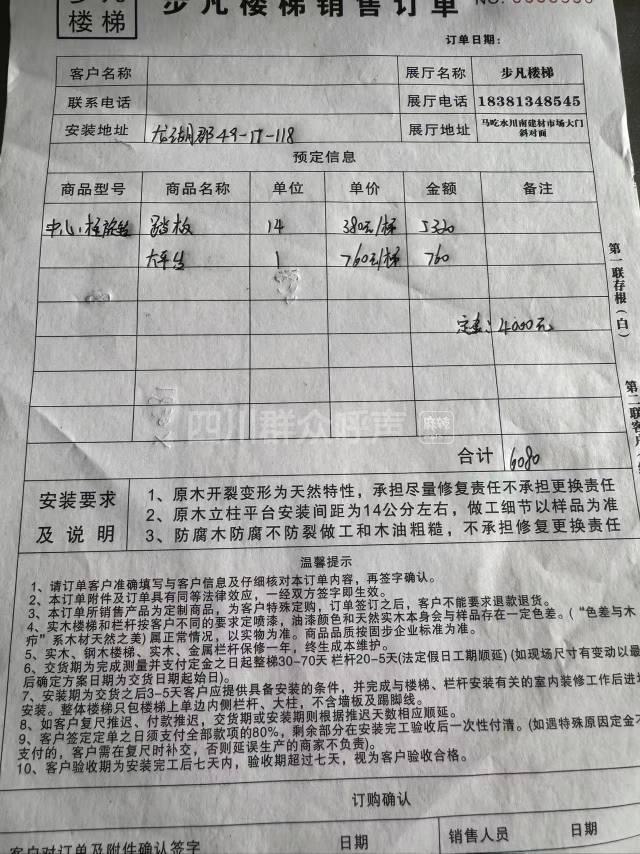 步凡楼梯销售订单 NO.
楼梯
订单日期:
客户名称 展厅名称 步凡楼梯
联系电话 展厅电话 18381348545
安装地址 龙湖郡49-17-118 展厅地址 马吃水川南建材市场大门斜对面
预定信息
商品型号 商品名称 单位 单价 金额 备注
中心柱旋转 踏板 14 380元/梯 5320
大平台 1 760元/梯 760
定金:4000元
四川群众呼声 麻辣
合计 6080
第一联存根(白)
第二联客户
安装要求及说明
1、原木开裂变形为天然特性,承担尽量修复责任不承担更换责任
2、原木立柱平台安装间距为14公分左右,做工细节以样品为准
3、防腐木防腐不防裂做工和木油粗糙,不承担修复更换责任
温馨提示
1、请订单客户准确填写与客户信息及仔细核对本订单内容,再签字确认。
2、本订单附件及订单具有同等法律效应,一经双方签字即生效。
3、本订单所销售产品为定制商品,为客户特殊定购,订单签订之后,客户不能要求退款退货。
4、实木楼梯和栏杆按客户不同的要求定喷漆,油漆颜色和天然实木本身会与样品存在一定色差。(“色差与木
疖”系木材天然之美)属正常情况,以实物为准。商品品质按固步企业标准为准。
5、实木、钢木楼梯、实木、金属栏杆保修一年,终生成本维护。
6、交货期为完成测量并支付定金之日起整梯30-70天 栏杆20-5天(法定假日工期顺延)(如现场尺寸有变动以最
后确定方案日期为交货日期起始日)。
7、安装期为交货之后3-5天客户应提供具备安装的条件,并完成与楼梯、栏杆安装有关的室内装修工作后进场
安装。整体楼梯只包楼梯上单边内侧栏杆、大柱,不含墙板及踢脚线。
8、如客户复尺推迟、付款推迟,交货期或安装期则根据推迟天数相应顺延。
9、客户签定定单之日须支付全部款项的80%,剩余部分在安装完工验收后一次性付清。(如遇特殊原因定金不
支付的,客户需在复尺时补交,否则延误生产的商家不负责)。
10、客户验收期为安装完工后七天内,验收期超过七天,视为客户验收合格。
订购确认
客户对订单及附件确认签字 日期 销售人员 日期